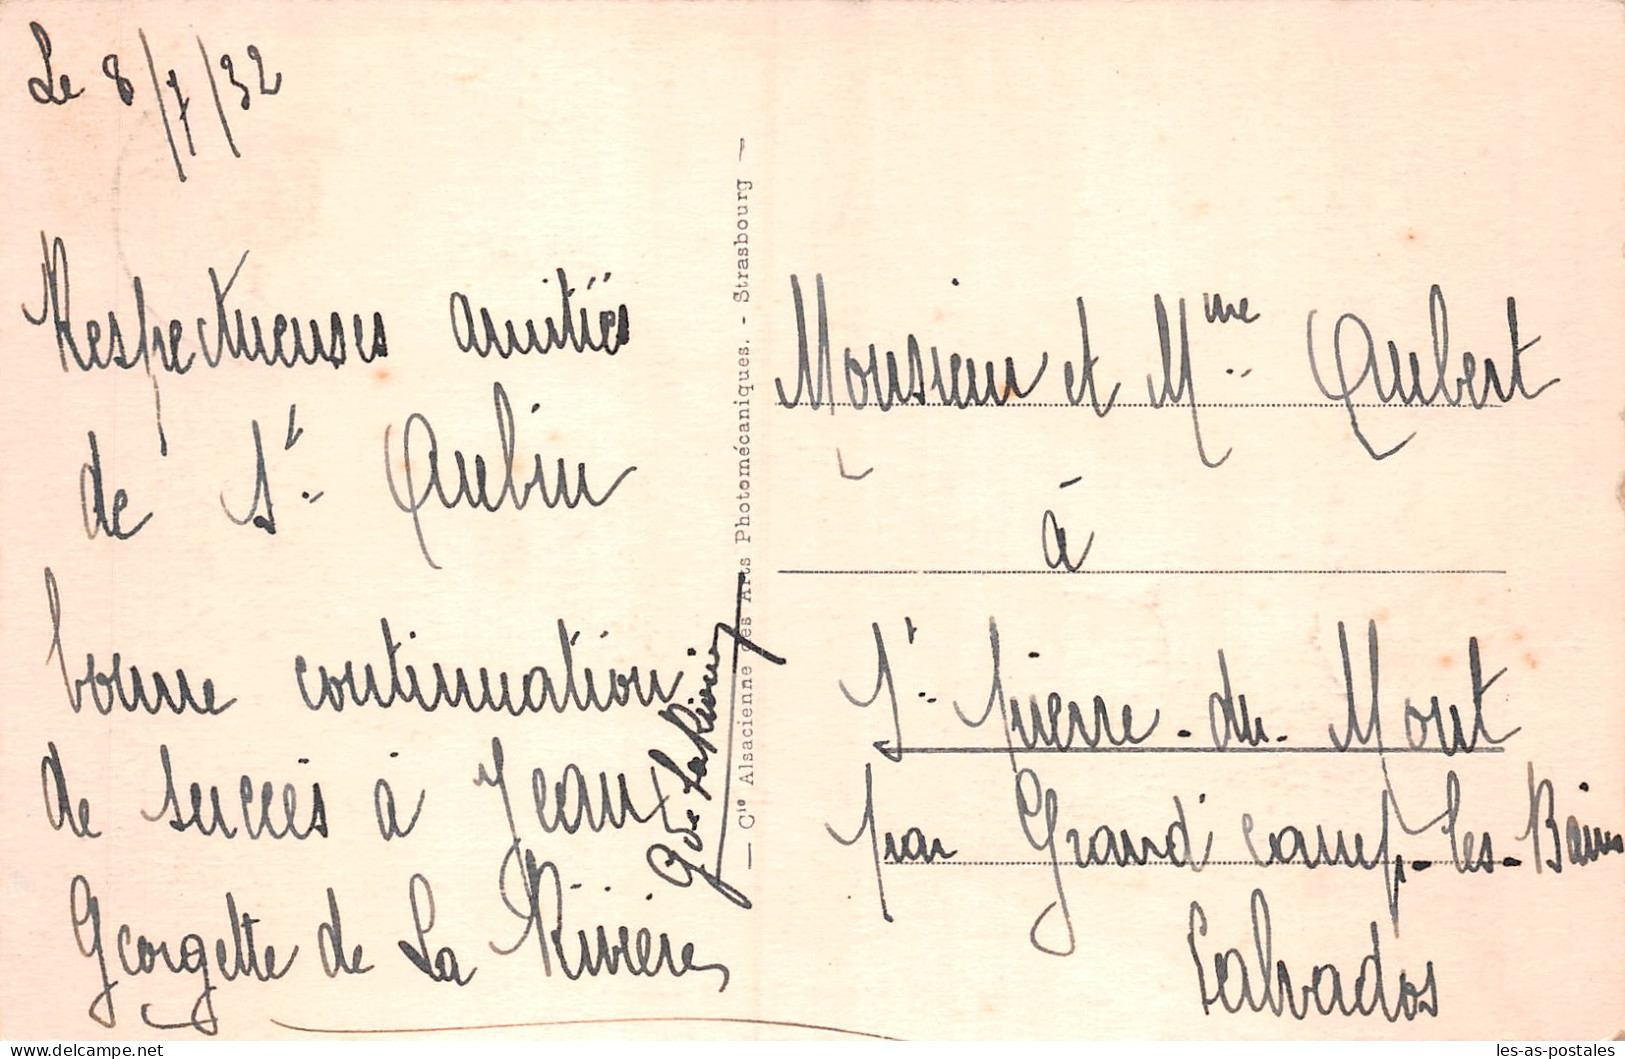 Le 8/7/32
Respectueuses amitiés
de St. Aubin
bonne continuation
de succès à Jean
Georgette de La Rivière
G de La Rivière
— Cie Alsacienne des Arts Photomécaniques. - Strasbourg —
Monsieur et Mme Aubert
à
St. Pierre-du-Mont
par Grand camp-les-Bains
Calvados
les-as-postales